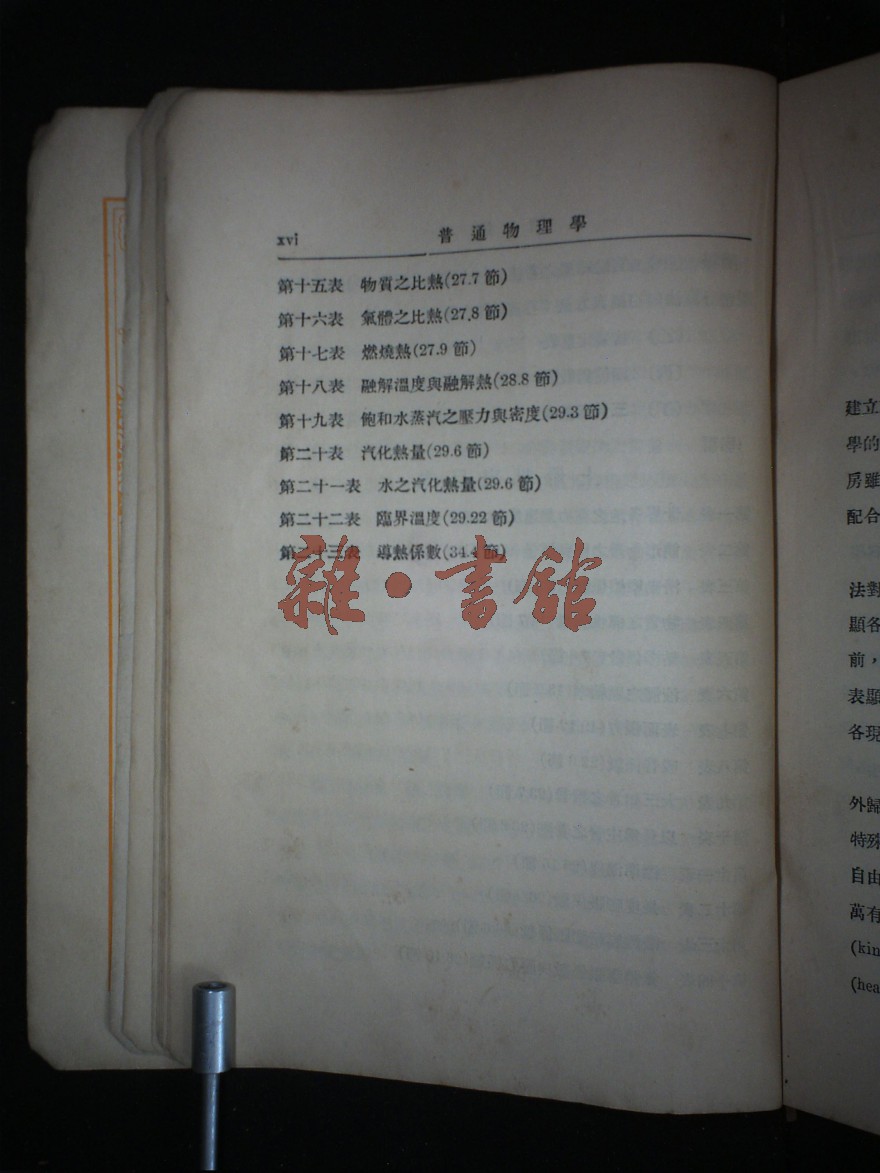 xvi 普通物理學
第十五表 物質之比熱(27.7節)
第十六表 氣體之比熱(27.8節)
第十七表 燃燒熱(27.9節)
第十八表 融解溫度與融解熱(28.8節)
第十九表 飽和水蒸汽之壓力與密度(29.3節)
第二十表 汽化熱量(29.6節)
第二十一表 水之汽化熱量(29.6節)
第二十二表 臨界溫度(29.22節)
第二十三表 導熱係數(34.4節)
雜·書館
建立
學的
房雖
配合
法對
顯各
前，
表顯
各現
外歸
特殊
自由
萬有
(kin
(hea